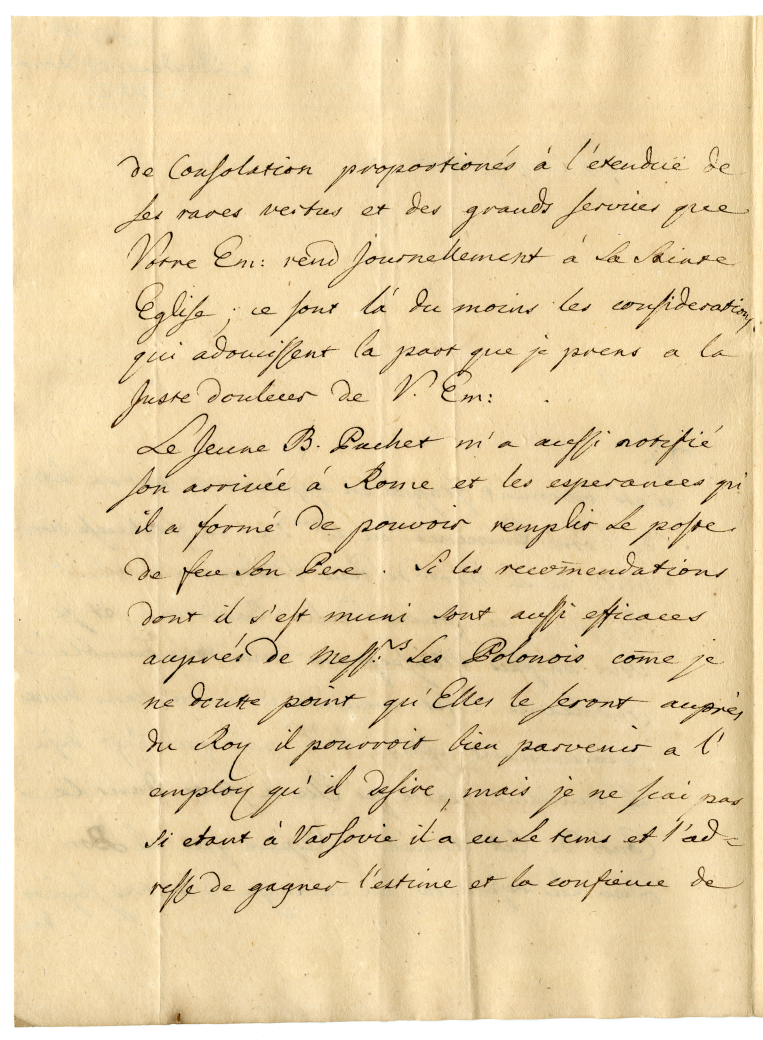 de Consolation proportionés à l'etenduë de
ses rares vertus et des grands services que
Votre Em: rend journellement à La Sainte
Eglise ; ce sont là du moins les considerations
qui adoucissent la part que je prens a la
juste douleur de V. Em:
Le Jeune B. Puchet m'a aussi notifié
son arrivée à Rome et les esperances qu'
il a formé de pouvoir remplir Le poste
de feu Son Pere . Si les recom̄endations
dont il s'est muni sont aussi efficaces
auprés de Mess:rs Les Polonois com̄e je
ne doutte point qu'Elles le seront auprés
du Roy il pourroit bien parvenir a l'
employ qu'il desire, mais je ne sçai pas
si etant à Varsovie il a eu Le tems et l'ad-
resse de gagner l'estime et la confience de